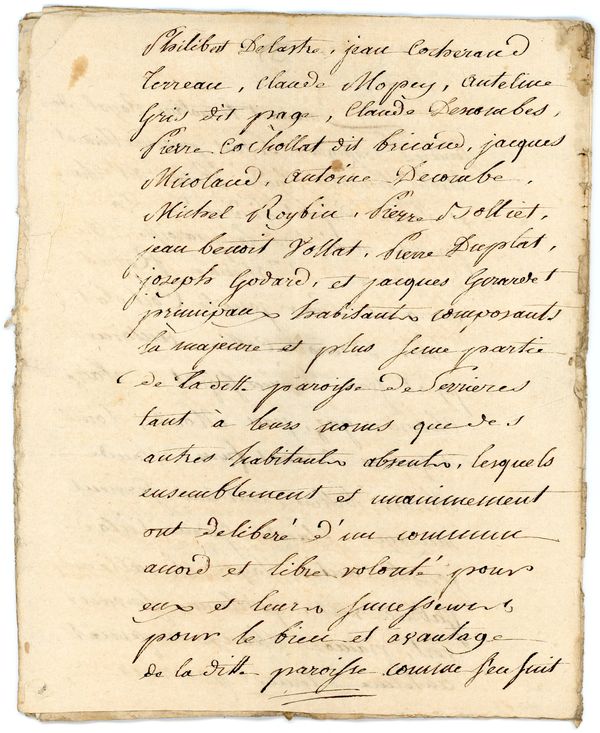 Philibert Delastre, jean Cocherand
Terreau, Claude Mopey, anteline
Gris dit page, Claude Decombes,
Pierre Cochollat dit bricand, jacques
Micolaud, antoine Decombe,
Michel Roybin, Pierre Jolliet,
jean benoit Vollat, Pierre Duplat,
joseph Godard, et jacques Girardet
principaux habitants composants
la majeure et plus seine partie
de la ditte paroisse de Serrieres
tant à leurs noms que des
autres habitants absents, lesquels
ensemblement et unanimement
ont deliberé d'un commun
accord et libre volonté pour
eux et leurs successeurs
pour le bien et avantage
de la ditte paroisse comme s'en suit